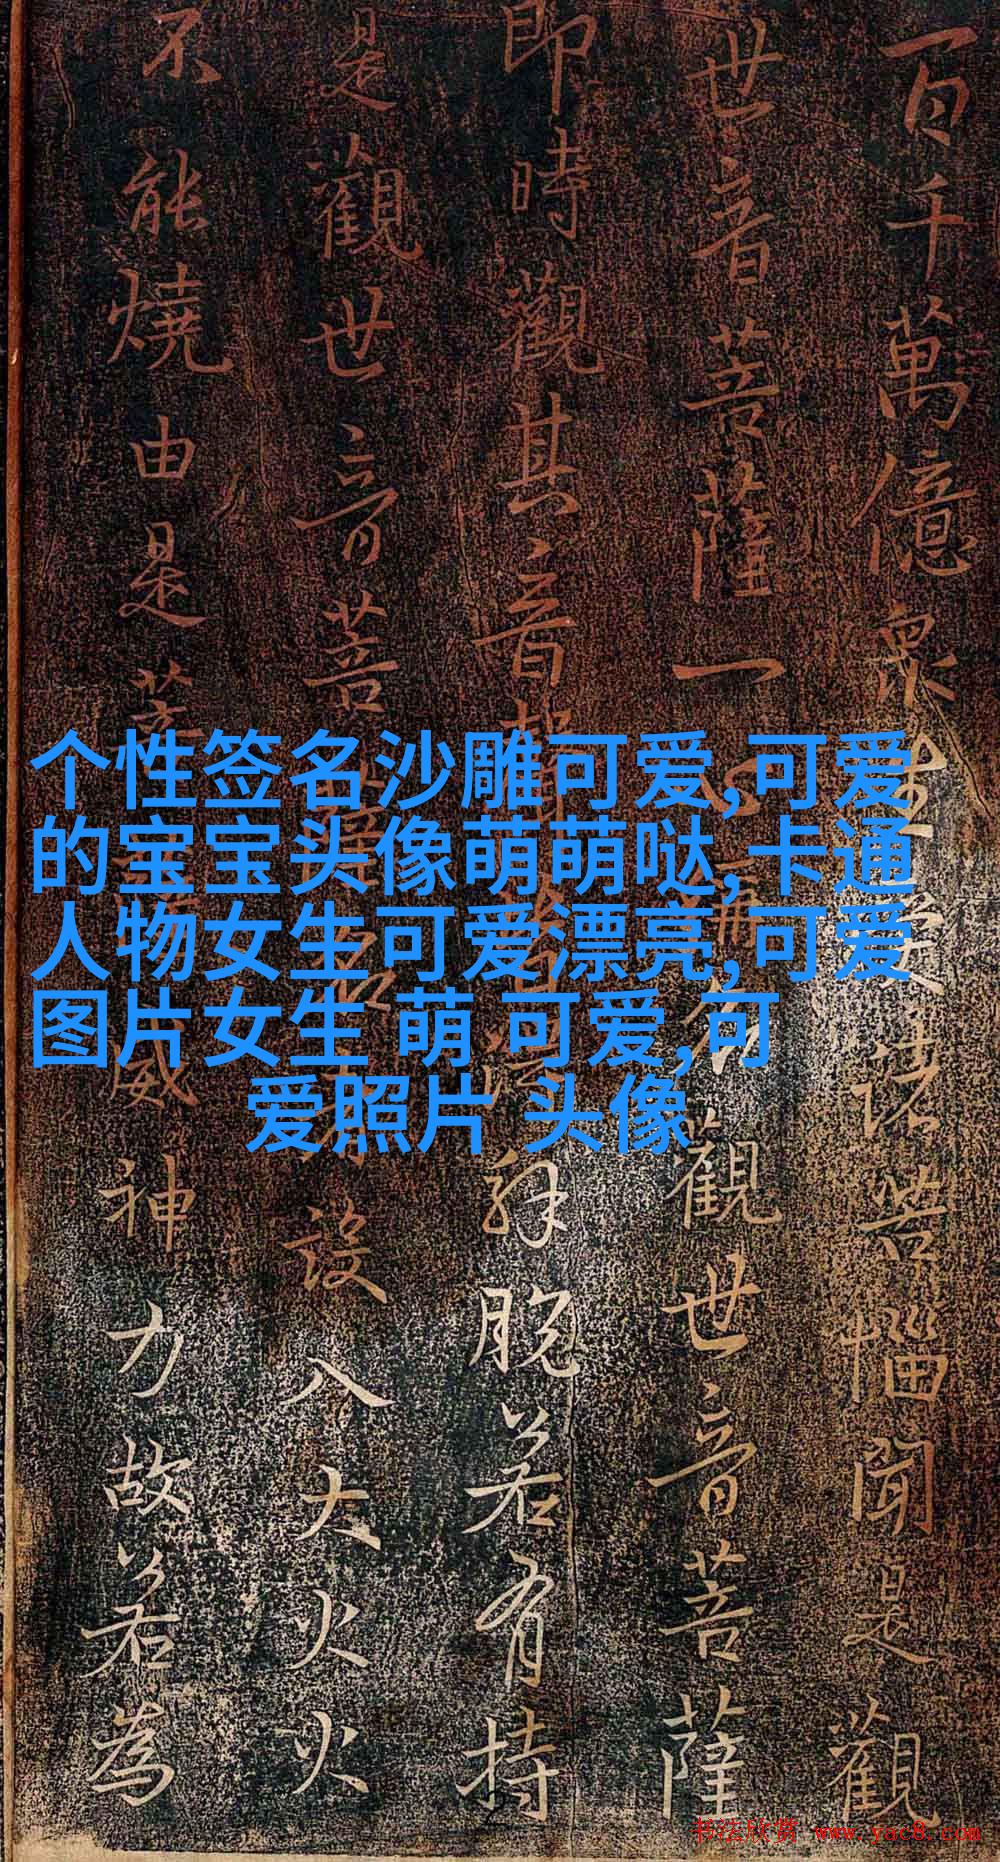 百千萬億眾生受諸苦惱聞是觀
世音菩薩一心稱名觀世音菩薩
即時觀其音聲皆得解脫若有持
是觀世音菩薩名者設入大火火
不能燒由是菩薩威神力故若為
个性签名沙雕可爱,可爱
的宝宝头像萌萌哒,卡通
人物女生可爱漂亮,可爱
图片女生 萌 可爱,可
爱照片 头像
书法欣赏 www.yac8.com